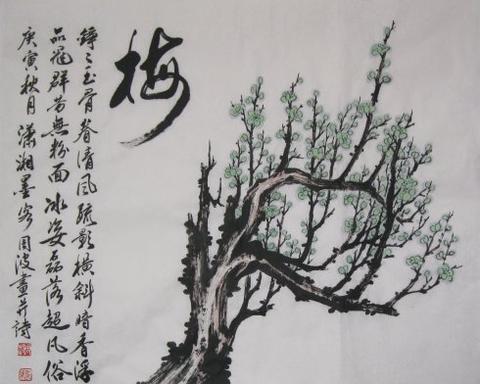 梅
錚々玉骨眷清風疏影横斜暗香浮
品冠群芳無粉面冰姿磊落超凡俗
庚寅秋月瀟湘墨客周波畫并詩